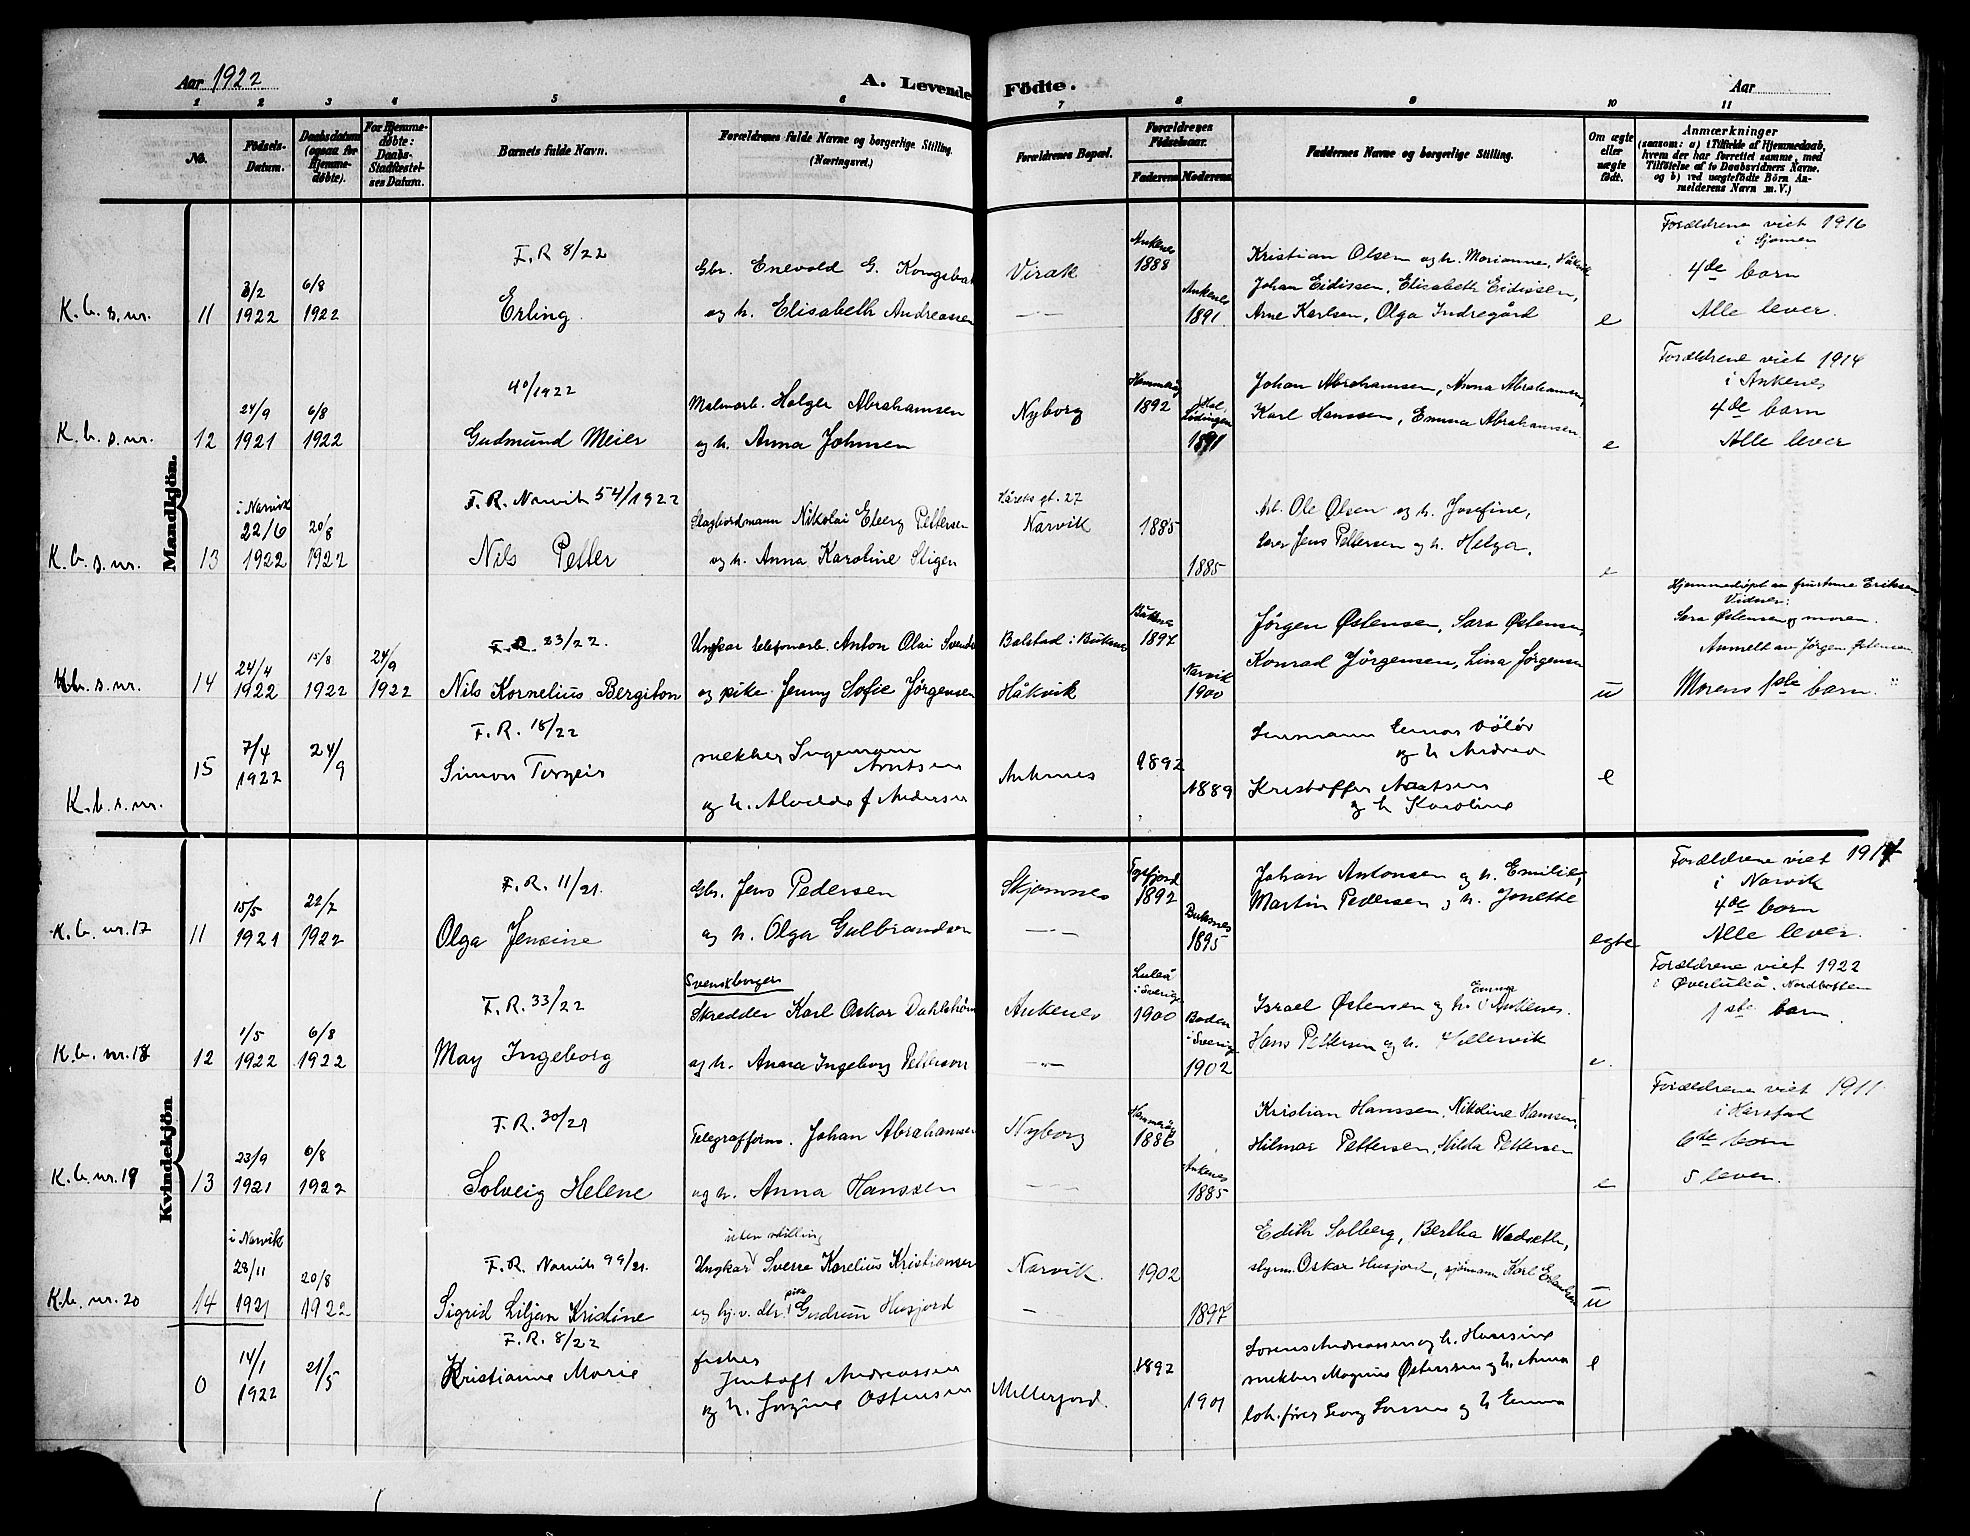 Aar 1922
A. Levende Födte.
Aar
1 2 3 4 5 6 7 8 9 10 11
No.
Födsels-Datum.
Daabsdatum (ogsaa for Hjemmedøbte).
For Hjemmedøbte: Daabs-Stadfæstelses Datum.
Barnets fulde Navn.
Forældrenes fulde Navne og borgerlige Stilling. (Næringsvei.)
Forældrenes Bopæl.
Forældrenes Födselsaar.
Faderens Moderens
Faddernes Navne og borgerlige Stilling.
Om ægte eller uægte født.
Anmærkninger
(saasom: a) i Tilfælde af Hjemmedaab, hvem der har forrettet samme, med Tilføielse af to Daabsvidners Navne, og b) ved uægtefødte Börn Anmelderens Navn m. V.)
Mandkjön.
K. b. s. nr. 11
3/2 1922
6/8 1922
F. R 8/22
Erling
Gbr. Enevold G. Kongsbak
og h. Elisabeth Andreassen
Virak
Ankenes 1888
Ankenes 1891
Kristian Olsen og h. Marianne, Håkvik
Johan Eidissen, Elisabeth Eidissen,
Arne Karlsen, Olga Indregård
e
Forældrene viet 1916
i Sjomen
4de barn
Alle lever.
K. b. s. nr. 12
24/9 1921
6/8 1922
40/1922
Gudmund Meier
Malmarb. Holger Abrahamsen
og h. Anna Johnsen
Nyborg
1892
Lødingen 1891
Johan Abrahamsen, Anna Abrahamsen,
Karl Hanssen, Emma Abrahamsen
e
Forældrene viet 1914
i Ankenes
4de barn
Alle lever
K. b. s. nr. 13
i Narvik 22/6 1922
20/8 1922
F. R. Narvik 54/1922
Nils Petter
Slagbordmann Nikolai Eberg Pettersen
og h. Anna Karoline Stigen
gt. 27
Narvik
1885
1885
Arb. Ole Olsen og h. Josefine,
Jens Pettersen og h. Helga.
e
K. b. s. nr. 14
24/4 1922
15/8 1922
24/9 1922
F. R. 23/22.
Nils Kornelius Bergiton
Ungkar telefonarb. Anton Olai
og pike Jenny Sofie Jørgensen
Balstad i Buksnes
Håkvik
1897
Narvik 1900
Jörgen Østensen, Sara Østensen,
Konrad Jørgensen, Lina Jørgensen
u
Hjemmedøpt av Eriksen
Vidner:
Sara Østensen og moren.
Anmelt av Jørgen Østensen
Morens 1ste barn.
K. b. s. nr. 15
7/4 1922
24/9
F. R. 18/22
Simon Torgeir
snekker Ingemann Arntsen
og h. Alvilde f Andersen
Ankenes
1892
1889
og h Andrea
Kristoffer Arntsen
og h Karoline
e
Kvindekjön
K. b. nr. 17 11
15/5 1921
22/7 1922
F. R. 11/21.
Olga Jensine
Gbr. Jens Pedersen
og h. Olga Gulbrandsen
Skjomnes
1892
Buksnes 1895
Johan Antonsen og h. Emilie,
Martin Pedersen og h. Jonette
egte
Forældrene viet 1917
i Narvik
4de barn
Alle lever.
K. b. nr. 18 12
1/5 1922
6/8 1922
F. R. 33/22
May Ingeborg
Svensk borger
Skredder Karl Oskar Dahlstrøm
og h. Anna Ingeborg Petterson
Ankenes
Luleå i Sverige 1900
Boden i Sverige 1902
Israel Østensen og h. Emma, Ankenes.
Hans Pettersen og h.
e.
Forældrene viet 1922
i Øverluleå, Nordbotten
1ste barn.
K. b. nr. 19 13
23/9 1921
6/8 1922
F. R. 30/21
Solveig Helene
Telegrafform. Johan Abrahamsen
og h. Anna Hanssen
Nyborg
1886
Ankenes 1885
Kristian Hanssen, Nikoline Hanssen,
Hilmar Pettersen, Hilda Pettersen
e
Forældrene viet 1911
i Harstad
6te barn
5 lever.
K. b. nr. 20 14
i Narvik 23/11 1921
20/8 1922
F. R. Narvik 99/21.
Sigrid Liljan Kristine
uten stilling
Ungkar Sverre Karelius Kristiansen
og hj. v. dtr. pike Gudrun Husjord
Narvik.
1902
1897
Edith Solberg, Bertha Wadseth,
Oskar Husjord, sjømann Karl
u
0
14/1 1922
21/5
F. R. 8/22
Kristianne Marie
fisker
Andreassen
og h. Jorgine Ostensen
1892
1901
Sorens Andreassen og h. Hansine
snekker Magnus Østensen og h. Anna
lok. fører Georg og h Emma
e